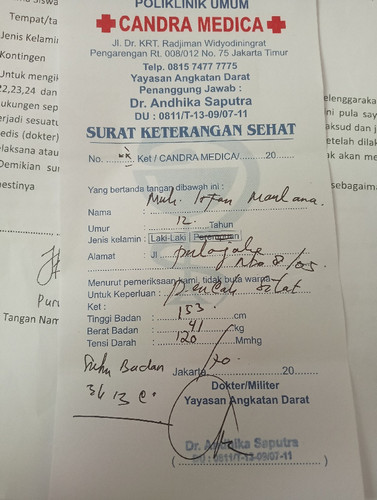 POLIKLINIK UMUM
CANDRA MEDICA
Jl. Dr. KRT. Radjiman Widyodiningrat
Pengarengan Rt. 008/012 No. 75 Jakarta Timur
Telp. 0815 7477 7775
Yayasan Angkatan Darat
Penanggung Jawab :
Dr. Andhika Saputra
DU : 0811/T-13-09/07-11
SURAT KETERANGAN SEHAT
No. Ket / CANDRA MEDICA/ 20
Yang bertanda tangan dibawah ini :
Nama : Muh. Irfan Maulana.
Umur : 12 Tahun
Jenis kelamin : Laki-Laki / Perempuan
Alamat : Jl
Menurut pemeriksaan kami, tidak buta warna
Untuk Keperluan : Pencak Silat
Ket :
Tinggi Badan : 153 cm
Berat Badan : 41 kg
Tensi Darah : 120/70 Mmhg
Suhu Badan
Jakarta, 20
Dokter/Militer
Yayasan Angkatan Darat
Dr. Andhika Saputra
DU : 0811/T-13-09/07-11
Tempat/ta
Jenis Kelami
Kontingen
Untuk mengik
22,23,24 dan
ukungen sep
erjadi sesuatu
edis (dokter)
elaksana atau
Demikian sur
estinya
Pur
Tangan Nam
elenggaraka
ni pula say
aksud dan j
etelah dilak
ak akan me
sebagaima